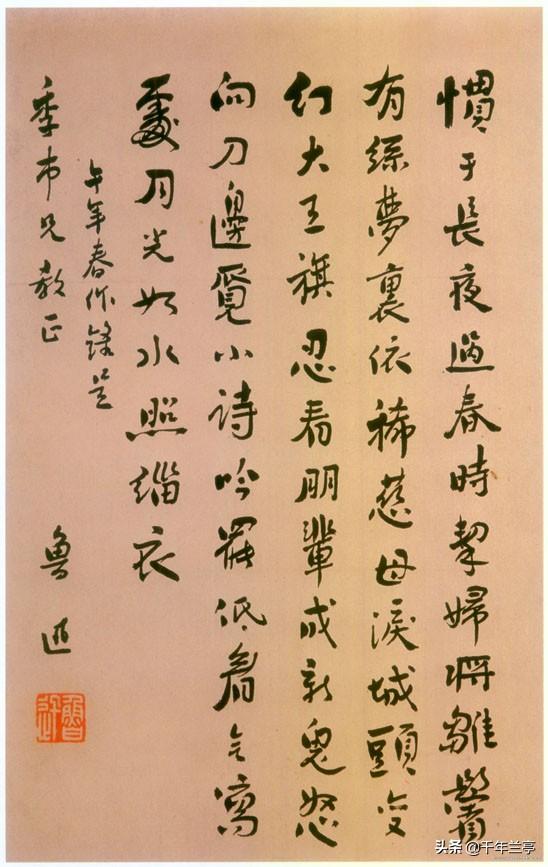 慣于長夜過春時挈婦將雛鬢
有絲夢裏依稀慈母淚城頭變
幻大王旗忍看朋輩成新鬼怒
向刀邊覓小詩吟罷低眉無寫
處月光如水照緇衣
午年春作錄呈
季市兄教正
魯迅
魯迅
头条 @千年兰亭